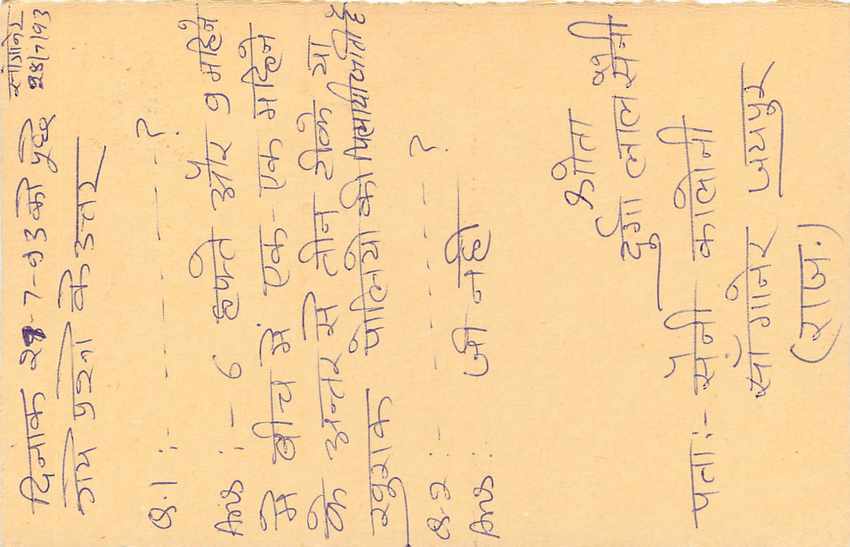 सांगानेर
28/7/93
दिनांक 28-7-93 को पुछे
गये प्रश्नो के उत्तर
Q.1 :- - - - - - - - ?
Ans :- 6 हफ्ते और 9 महिने
मे बीच में एक-एक महिने
के अन्तर से तीन टीके या
खुराक पोलियो की पिलायी जाती है
Q-2 :- - - - - - - ?
Ans :- जी नही
श्रोता
दुर्गा लाल सैनी
पता :- सैनी कालोनी
सांगानेर जयपुर
(राज.)